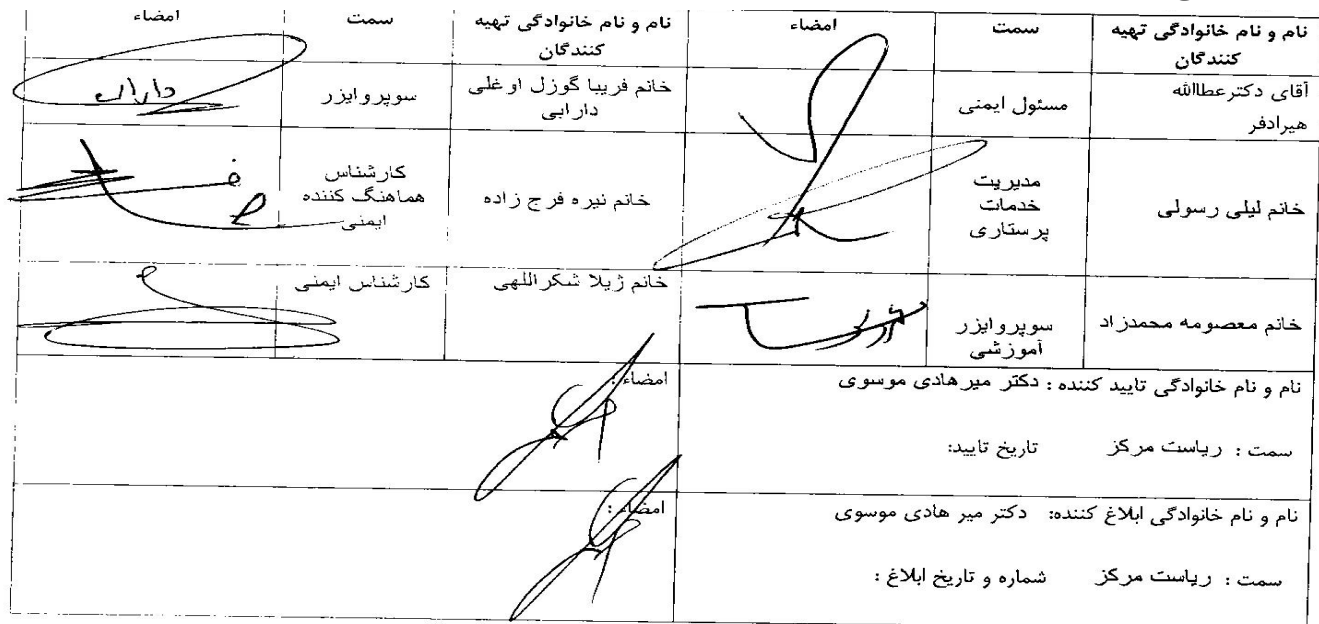 نام و نام خانوادگی تهیه کنندگان
سمت
امضاء
نام و نام خانوادگی تهیه کنندگان
سمت
امضاء
آقای دکترعطاالله
هیرادفر
مسئول ایمنی
خانم فریبا گوزل اوغلی
دارابی
سوپروایزر
خانم لیلی رسولی
مدیریت
خدمات
پرستاری
خانم نیره فرج زاده
کارشناس
هماهنگ کننده
ایمنی
خانم معصومه محمدزاد
سوپروایزر
آموزشی
خانم ژیلا شکراللهی
کارشناس ایمنی
نام و نام خانوادگی تایید کننده : دکتر میرهادی موسوی
امضاء :
سمت : ریاست مرکز تاریخ تایید:
نام و نام خانوادگی ابلاغ کننده: دکتر میر هادی موسوی
امضاء :
سمت : ریاست مرکز شماره و تاریخ ابلاغ :